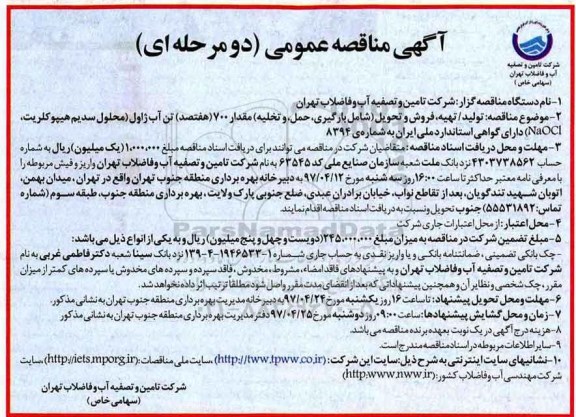 آگهی مناقصه عمومی (دو مرحله ای)
شرکت تامین و تصفیه
آب و فاضلاب تهران
(سهامی خاص)
۱-نام دستگاه مناقصه گزار: شرکت تامین و تصفیه آب و فاضلاب تهران
۲-موضوع مناقصه: تولید/ تهیه، فروش و تحویل (شامل بارگیری، حمل، و تخلیه) مقدار ۷۰۰ (هفتصد) تن آب ژاول (محلول سدیم هیپوکلریت،
NaOCl) دارای گواهی استاندارد ملی ایران به شماره ی ۸۳۹۴
۳- مهلت و محل دریافت اسناد مناقصه: متقاضیان شرکت در مناقصه می توانند برای دریافت اسناد مناقصه مبلغ ۱,۰۰۰,۰۰۰ (یک میلیون) ریال به شماره
حساب ۴۳۰۷۳۸۵۶۲ نزد بانک ملت شعبه سازمان صنایع ملی کد ۶۳۵۴۵ به نام شرکت تامین و تصفیه آب و فاضلاب تهران واریز و فیش مربوطه را
با معرفی نامه معتبر حداکثر تا ساعت ۱۶:۰۰ روز سه شنبه مورخ ۹۷/۰۴/۱۲ به دبیرخانه بهره برداری منطقه جنوب تهران واقع در تهران، میدان بهمن،
اتوبان شهید تندگویان، بعد از تقاطع نواب، خیابان برادران عبدی، ضلع جنوبی پارک ولایت، بهره برداری منطقه جنوب، طبقه سوم (شماره
تماس: ۵۵۵۳۱۸۹۲) جنوب تحویل و نسبت به دریافت اسناد مناقصه اقدام نمایند.
۴- محل اعتبار: از محل اعتبارات جاری شرکت
۵- مبلغ تضمین شرکت در مناقصه به میزان مبلغ ۲۴۵,۰۰۰,۰۰۰ (دویست و چهل و پنج میلیون) ریال و به یکی از انواع ذیل می باشد:
- چک بانکی تضمینی، ضمانتنامه بانکی و یا واریز نقدی به حساب جاری شماره ۱-۱۹۴۶۵۳۳-۴-۱۳۹ نزد بانک سینا شعبه دکتر فاطمی غربی به نام
شرکت تامین و تصفیه آب و فاضلاب تهران و به پیشنهادهای فاقد امضاء، مشروط، مخدوش، فاقد سپرده و سپرده های مخدوش یا سپرده های کمتر از میزان
مقرر، چک شخصی و نظایر آن و همچنین پیشنهاداتی که بعد از انقضای مدت مقرر واصل شود مطلقاً ترتیب اثر داده نخواهد شد.
۶- مهلت و محل تحویل پیشنهاد: تا ساعت ۱۶ روز یکشنبه مورخ ۹۷/۰۴/۲۴ دبیرخانه مدیریت بهره برداری منطقه جنوب تهران به نشانی مذکور.
۷- زمان و محل گشایش پیشنهادها: ساعت ۰۹:۰۰ روز دوشنبه مورخ ۹۷/۰۴/۲۵ دفتر مدیریت بهره برداری منطقه جنوب تهران به نشانی مذکور.
۸- هزینه درج آگهی در یک نوبت بعهده برنده مناقصه می باشد.
۹- سایر اطلاعات مربوطه در اسناد مناقصه مندرج است.
۱۰- نشانیهای سایت اینترنتی به شرح ذیل: سایت این شرکت: (http://tww.tpww.co.ir)، سایت ملی مناقصات: (http://iets.mporg.ir)، سایت
شرکت مهندسی آب و فاضلاب کشور: (http:www.nww.ir)
شرکت تامین و تصفیه آب و فاضلاب تهران
(سهامی خاص)
ParsNamadData